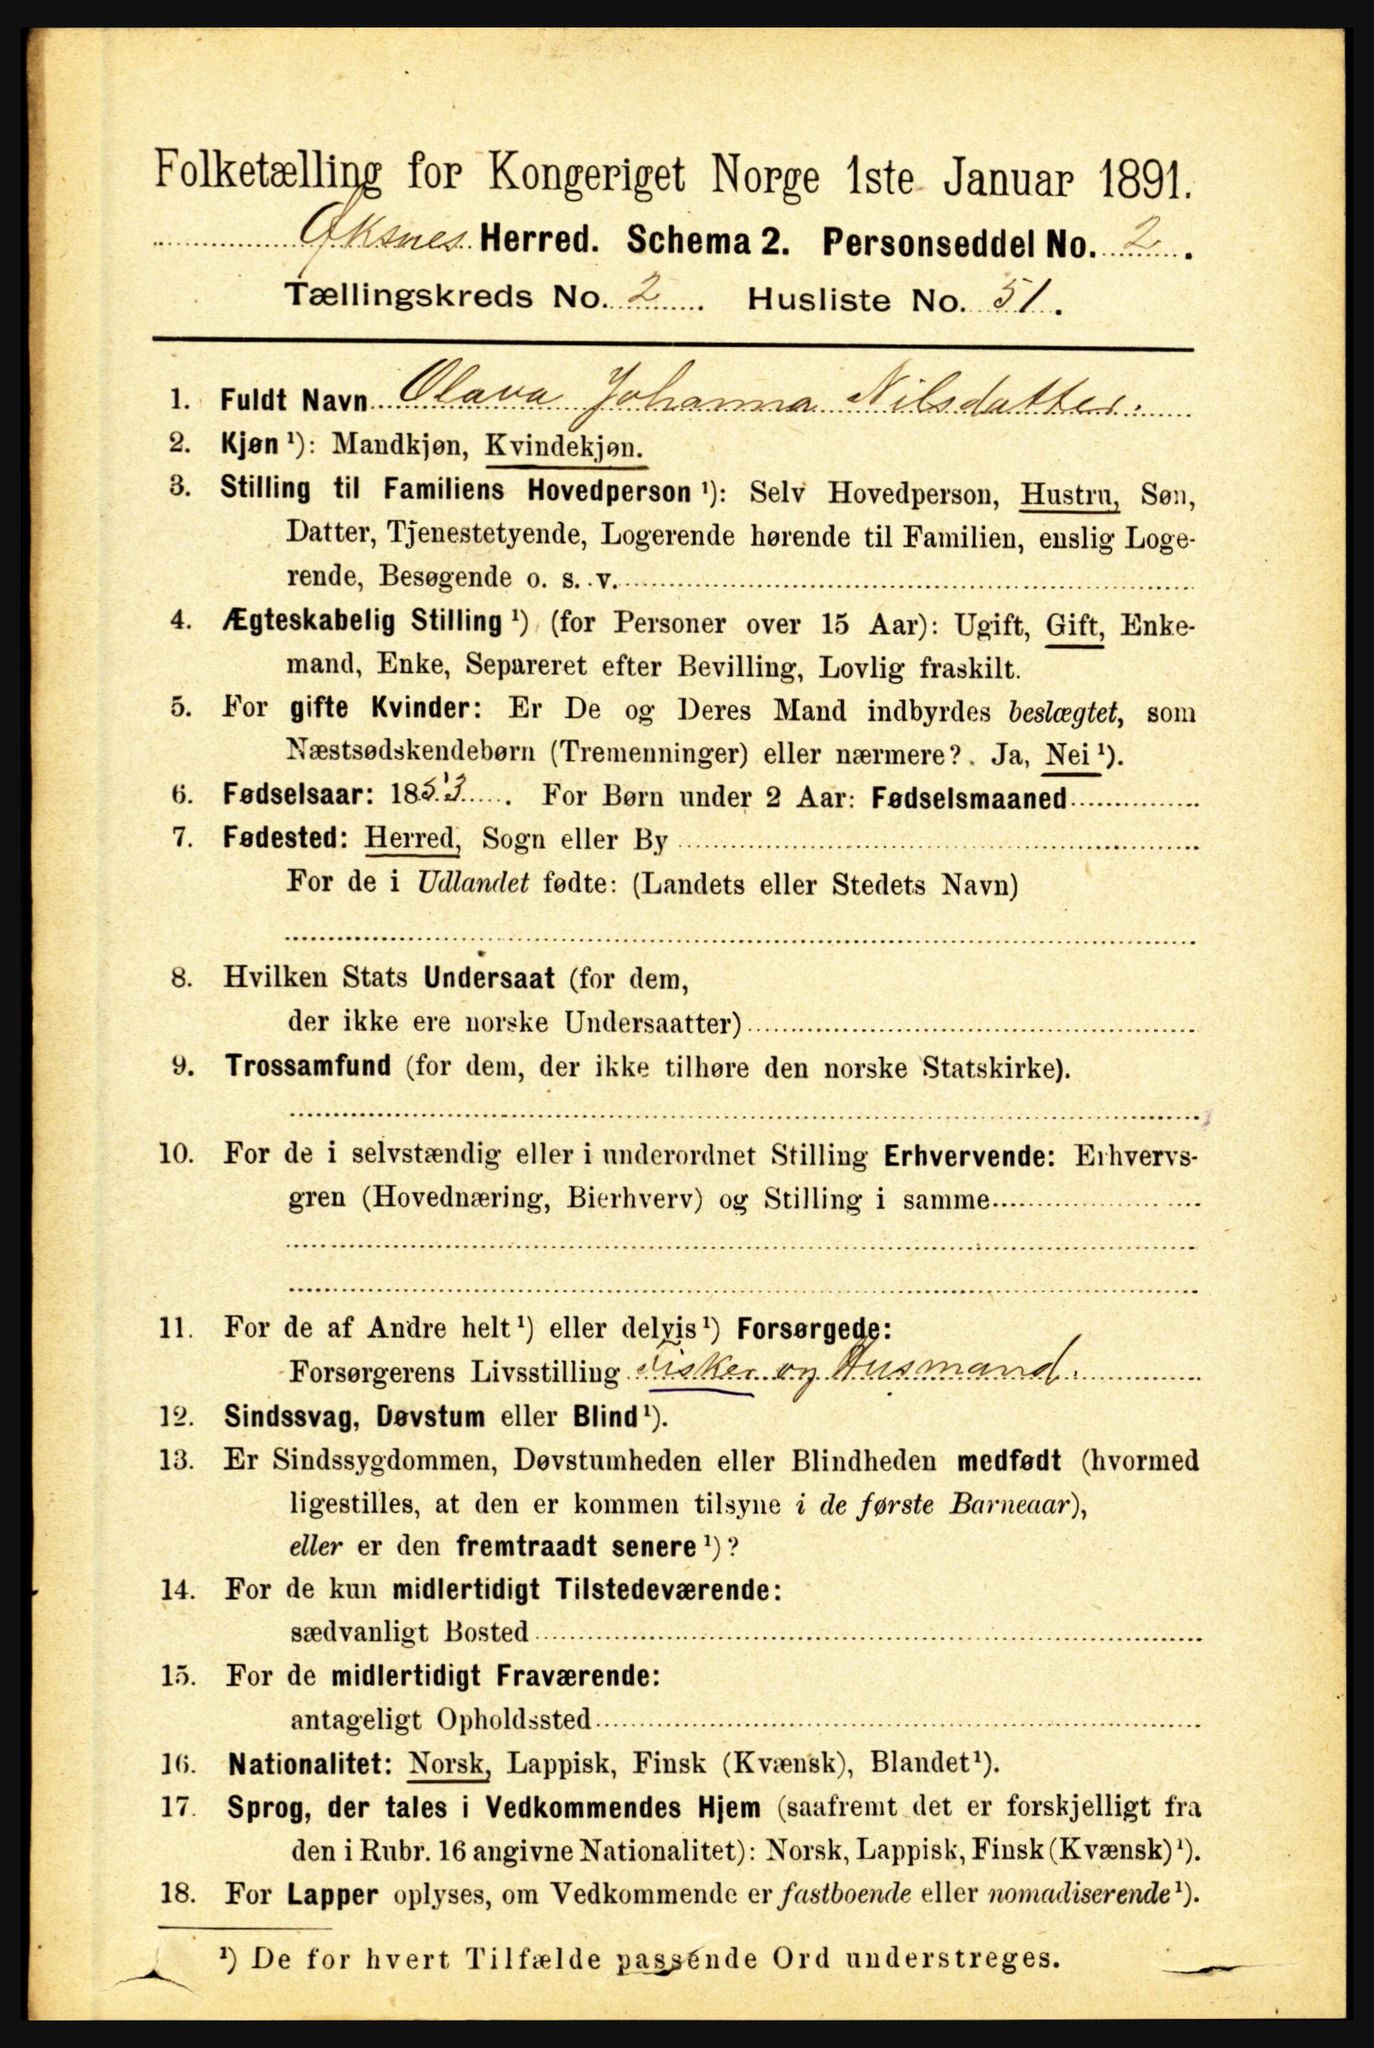 Folketælling for Kongeriget Norge 1ste Januar 1891.
Øksnes Herred. Schema 2. Personseddel No. 2.
Tællingskreds No. 2. Husliste No. 51.
1. Fuldt Navn Olava Johanna Nilsdatter.
2. Kjøn ¹): Mandkjøn, Kvindekjøn.
3. Stilling til Familiens Hovedperson ¹): Selv Hovedperson, Hustru, Søn,
Datter, Tjenestetyende, Logerende hørende til Familien, enslig Loge-
rende, Besøgende o. s. v.
4. Ægteskabelig Stilling ¹) (for Personer over 15 Aar): Ugift, Gift, Enke-
mand, Enke, Separeret efter Bevilling, Lovlig fraskilt.
5. For gifte Kvinder: Er De og Deres Mand indbyrdes beslægtet, som
Næstsødskendebørn (Tremenninger) eller nærmere? Ja, Nei ¹).
6. Fødselsaar: 1853. For Børn under 2 Aar: Fødselsmaaned
7. Fødested: Herred, Sogn eller By
For de i Udlandet fødte: (Landets eller Stedets Navn)
8. Hvilken Stats Undersaat (for dem,
der ikke ere norske Undersaatter)
9. Trossamfund (for dem, der ikke tilhøre den norske Statskirke).
10. For de i selvstændig eller i underordnet Stilling Erhvervende: Erhvervs-
gren (Hovednæring, Bierhverv) og Stilling i samme
11. For de af Andre helt ¹) eller delvis ¹) Forsørgede:
Forsørgerens Livsstilling Fisker og Husmand.
12. Sindssvag, Døvstum eller Blind ¹).
13. Er Sindssygdommen, Døvstumheden eller Blindheden medfødt (hvormed
ligestilles, at den er kommen tilsyne i de første Barneaar),
eller er den fremtraadt senere ¹)?
14. For de kun midlertidigt Tilstedeværende:
sædvanligt Bosted
15. For de midlertidigt Fraværende:
antageligt Opholdssted
16. Nationalitet: Norsk, Lappisk, Finsk (Kvænsk), Blandet ¹).
17. Sprog, der tales i Vedkommendes Hjem (saafremt det er forskjelligt fra
den i Rubr. 16 angivne Nationalitet): Norsk, Lappisk, Finsk (Kvænsk) ¹).
18. For Lapper oplyses, om Vedkommende er fastboende eller nomadiserende ¹).
¹) De for hvert Tilfælde passende Ord understreges.